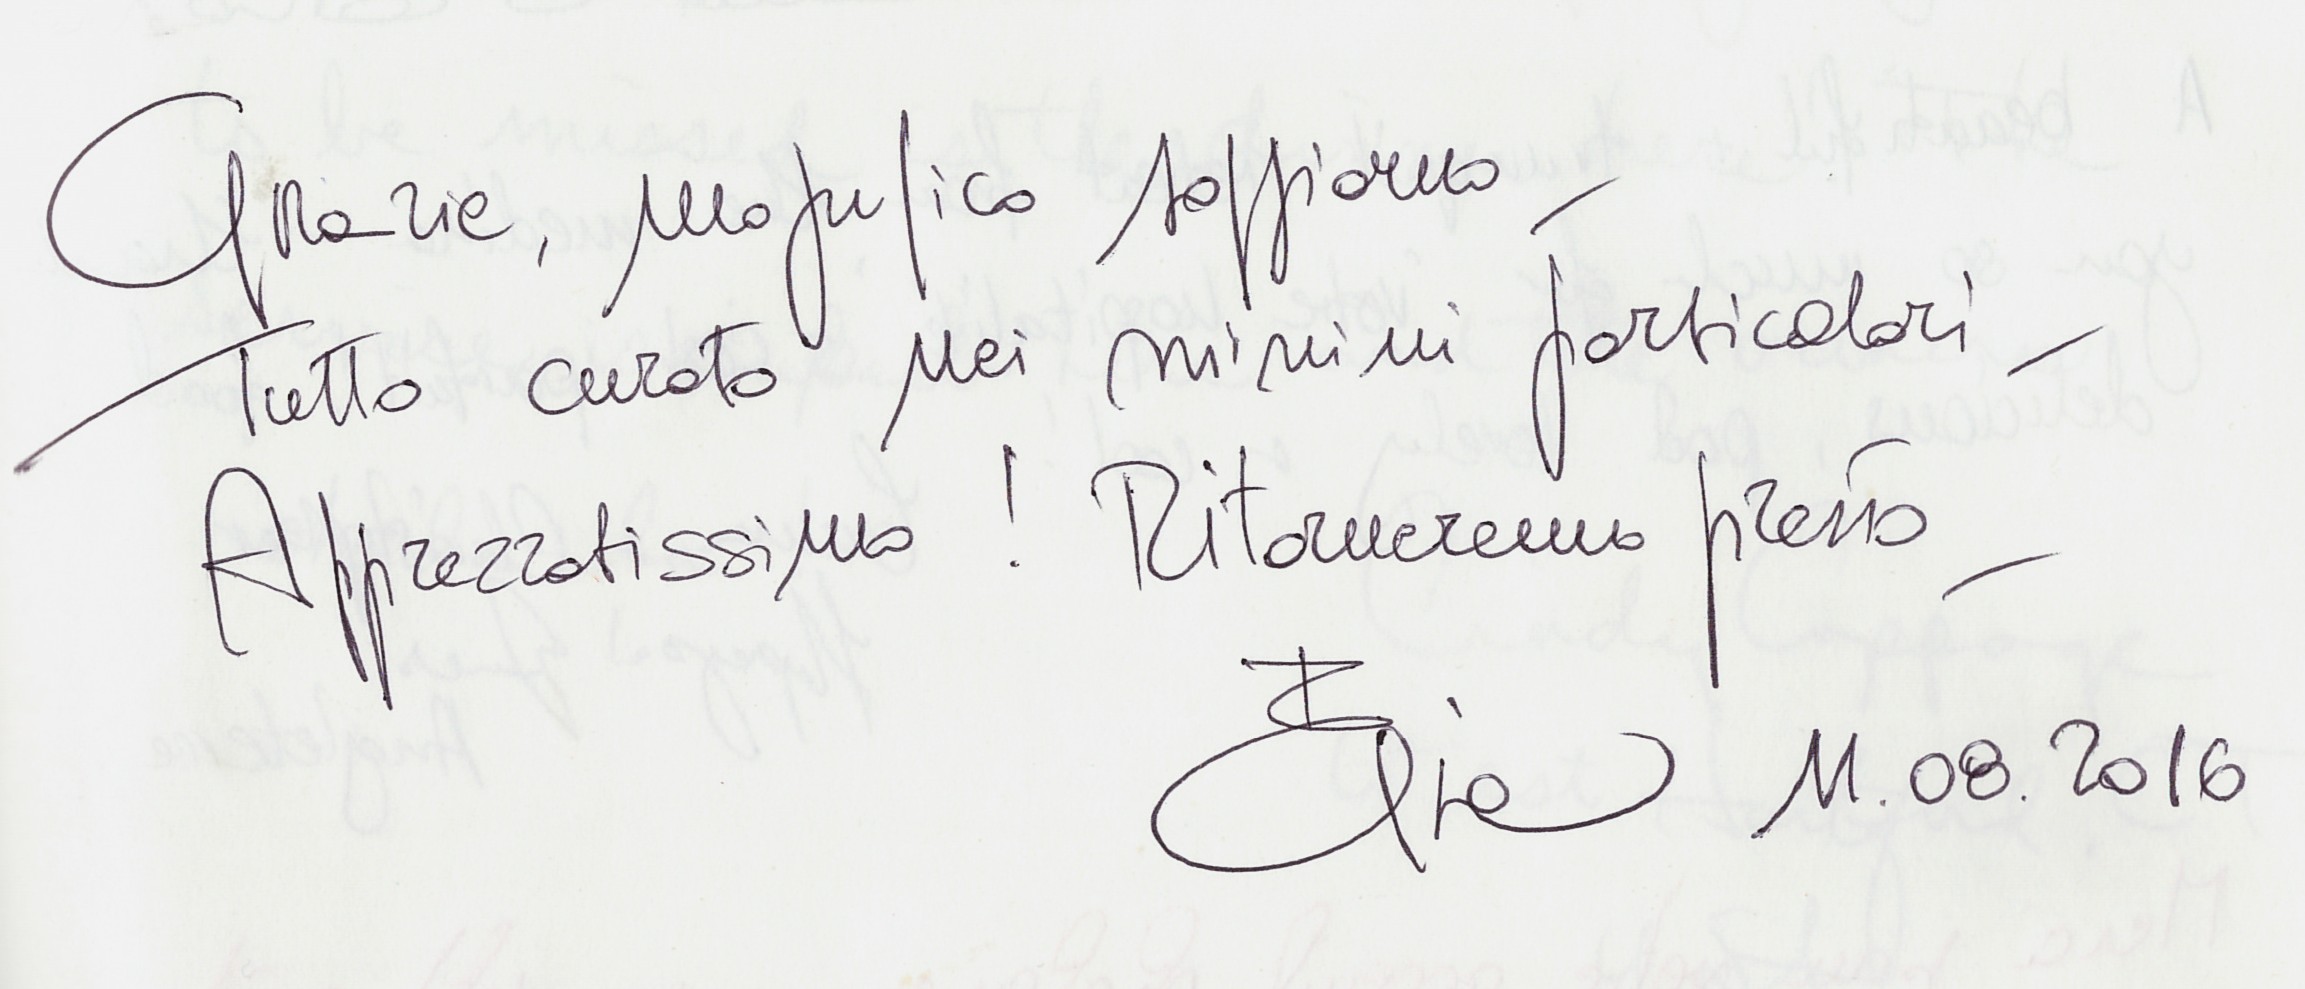 Grazie, magnifico soggiorno –
Tutto curato nei minimi particolari –
Apprezzatissimo ! Ritorneremo presto –
11.08.2016